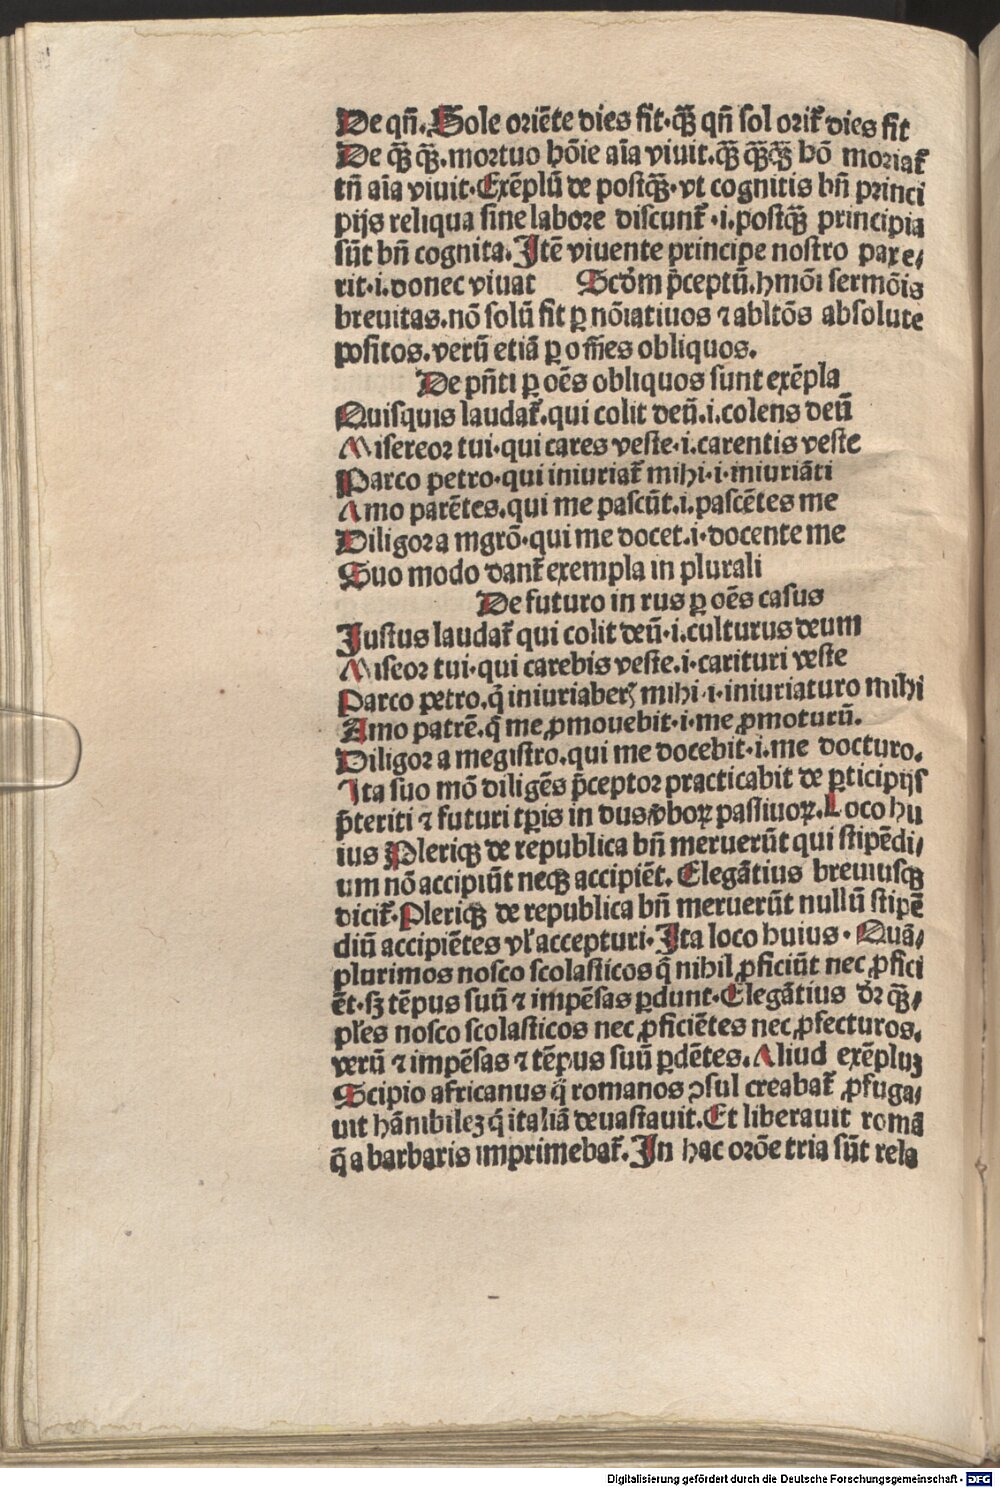 De qñ. Sole oriẽte dies fit· qꝫ̃ qñ sol orit᷑ dies fit
De qꝫ̃ qꝫ̃. mortuo hõie aĩa viuit. qꝫ̃ qꝫ̃qꝫ̃ hõ moriat᷑
tñ aĩa viuit· Exẽplũ de postqꝫ̃· vt cognitis bñ princi
pijs reliqua sine labore discunt᷑ ·i. postqꝫ̃ principia
sũt bñ cognita. Itẽ viuente principe nostro pax e/
rit·i. donec viuat Scd̃m p̃ceptũ. hmõi sermõis
breuitas. nõ solũ fit ꝑ nõiatiuos ⁊ abltõs absolute
positos. verũ etiã ꝑ om̃es obliquos.
De pñti ꝑ oẽs obliquos sunt exẽpla
Quisquis laudat᷑. qui colit deũ. i. colens deũ
Misereor tui· qui cares veste· i. carentis veste
Parco petro· qui iniuriat᷑ mihi· i· iniuriãti
Amo parẽtes. qui me pascũt. i. pascẽtes me
Diligor a mgr̃o· qui me docet. i· docente me
Suo modo dant᷑ exempla in plurali
De futuro in rus ꝑ oẽs casus
Iustus laudat᷑ qui colit deũ· i. culturus deum
Miseor tui· qui carebis veste. i· carituri veste
Parco petro. q̃ iniuriaberꝭ mihi · i· iniuriaturo mihi
Amo patrẽ. q̃ me ꝓmouebit· i· me ꝓmoturũ.
Diligor a megistro. qui me docebit· i. me docturo.
Ita suo mõ diligẽs p̃ceptor practicabit de ꝑticipijs
p̃teriti ⁊ futuri tp̃is in dus ṽboꝝ passiuoꝝ. Loco hu
ius Pleriqꝫ de republica bñ meruerũt qui stipẽdi/
um nõ accipiũt neqꝫ accipiẽt. Elegãtius breuiusqꝫ
dicit᷑· Pleriqꝫ de republica bñ meruerũt nullũ stipẽ
diũ accipiẽtes vl̃ accepturi· Ita loco huius · Quã/
plurimos nosco scolasticos q̃ nihil ꝓficiũt nec ꝓfici
ẽt· sꝫ tẽpus suũ ⁊ impẽsas ꝑdunt· Elegãtius dr̃ qꝫ̃/
pl̃es nosco scolasticos nec ꝓficiẽtes nec ꝓfecturos.
verũ ⁊ impẽsas ⁊ tẽpus suũ ꝑdẽtes. Aliud exẽpluꝫ
Scipio africanus q̃ romanos ꝯsul creabat᷑ ꝓfuga/
uit hãnibileꝫ q̃ italiã deuastauit. Et liberauit romã
q̃ a barbaris imprimebat᷑. In hac orõe tria sũt rela
Digitalisierung gefördert durch die Deutsche Forschungsgemeinschaft - DFG